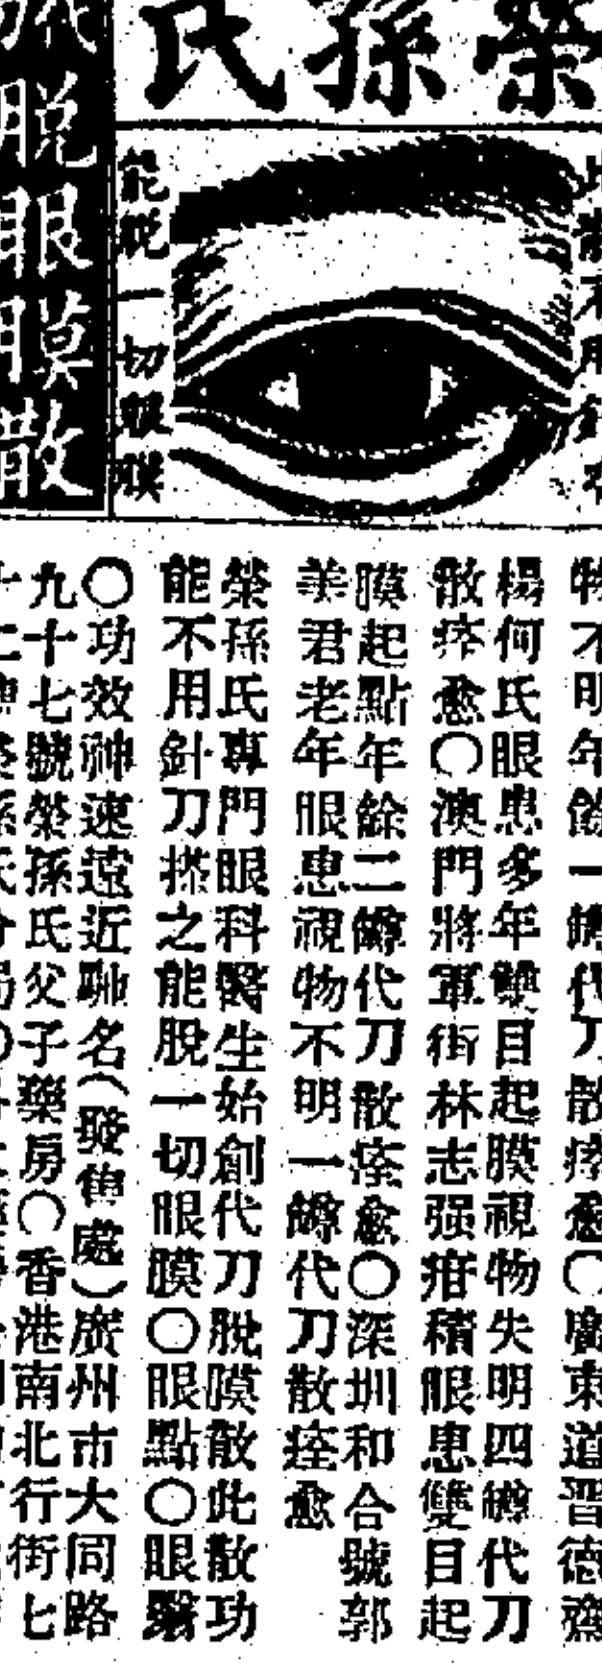 榮孫氏
能脫一切眼膜
脫眼膜散
物不明年餘一罇代刀散痊愈〇廣東道晋德齋
楊何氏眼患多年雙目起膜視物失明四罇代刀
散痊愈〇澳門將軍街林志强疳積眼患雙目起
膜起點年餘二罇代刀散痊愈〇深圳和合號郭
美君老年眼患視物不明一罇代刀散痊愈
榮孫氏專門眼科醫生始創代刀脫膜散此散功
能不用針刀搽之能脫一切眼膜〇眼點〇眼翳
〇功效神速遠近馳名(發售處)廣州市大同路
九十七號榮孫氏父子藥房〇香港南北行街七